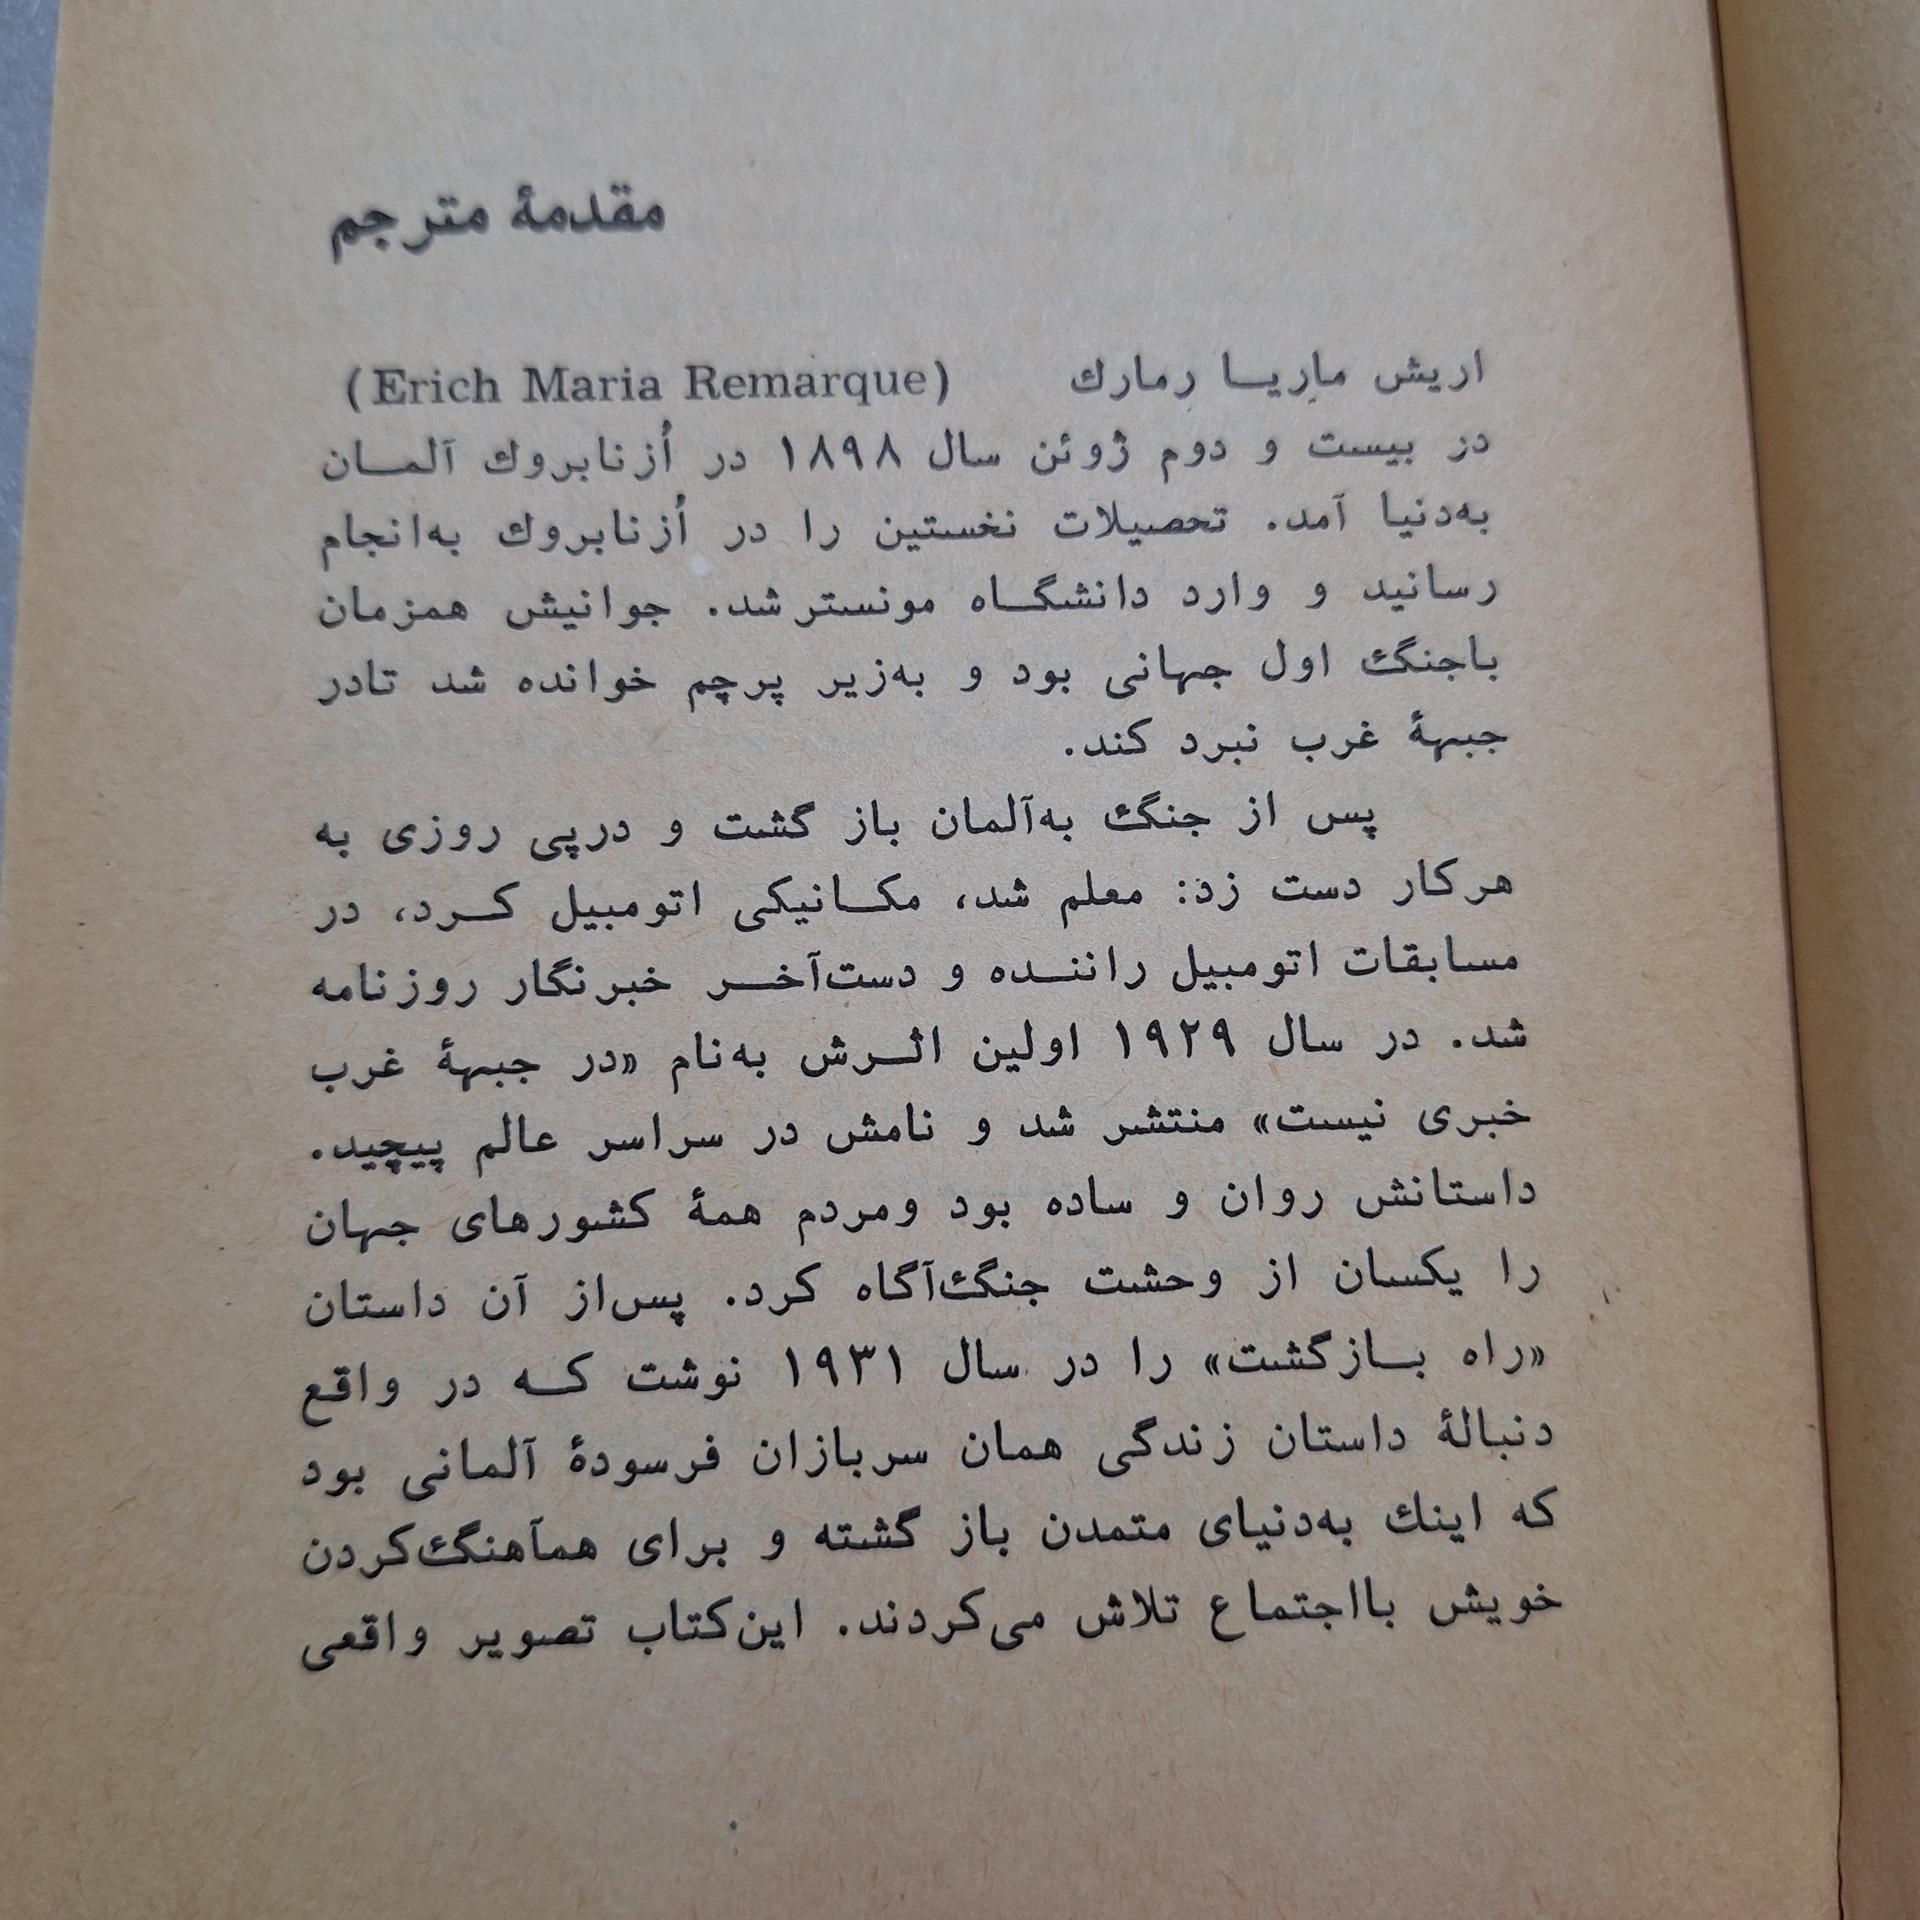 مقدمهٔ مترجم
اریش ماریا رمارك (Erich Maria Remarque)
در بیست و دوم ژوئن سال ۱۸۹۸ در اُزنابروك آلمان
به‌دنیا آمد. تحصیلات نخستین را در اُزنابروك به‌انجام
رسانید و وارد دانشگاه مونستر شد. جوانیش همزمان
باجنگ اول جهانی بود و به‌زیر پرچم خوانده شد تادر
جبههٔ غرب نبرد کند.
پس از جنگ به‌آلمان باز گشت و درپی روزی به
هرکار دست زد: معلم شد، مکانیکی اتومبیل کرد، در
مسابقات اتومبیل راننده و دست‌آخر خبرنگار روزنامه
شد. در سال ۱۹۲۹ اولین اثرش به‌نام «در جبههٔ غرب
خبری نیست» منتشر شد و نامش در سراسر عالم پیچید.
داستانش روان و ساده بود ومردم همهٔ کشورهای جهان
را یکسان از وحشت جنگ‌آگاه کرد. پس‌از آن داستان
«راه بازگشت» را در سال ۱۹۳۱ نوشت که در واقع
دنبالهٔ داستان زندگی همان سربازان فرسودهٔ آلمانی بود
که اینك به‌دنیای متمدن باز گشته و برای همآهنگ‌کردن
خویش بااجتماع تلاش می‌کردند. این‌کتاب تصویر واقعی